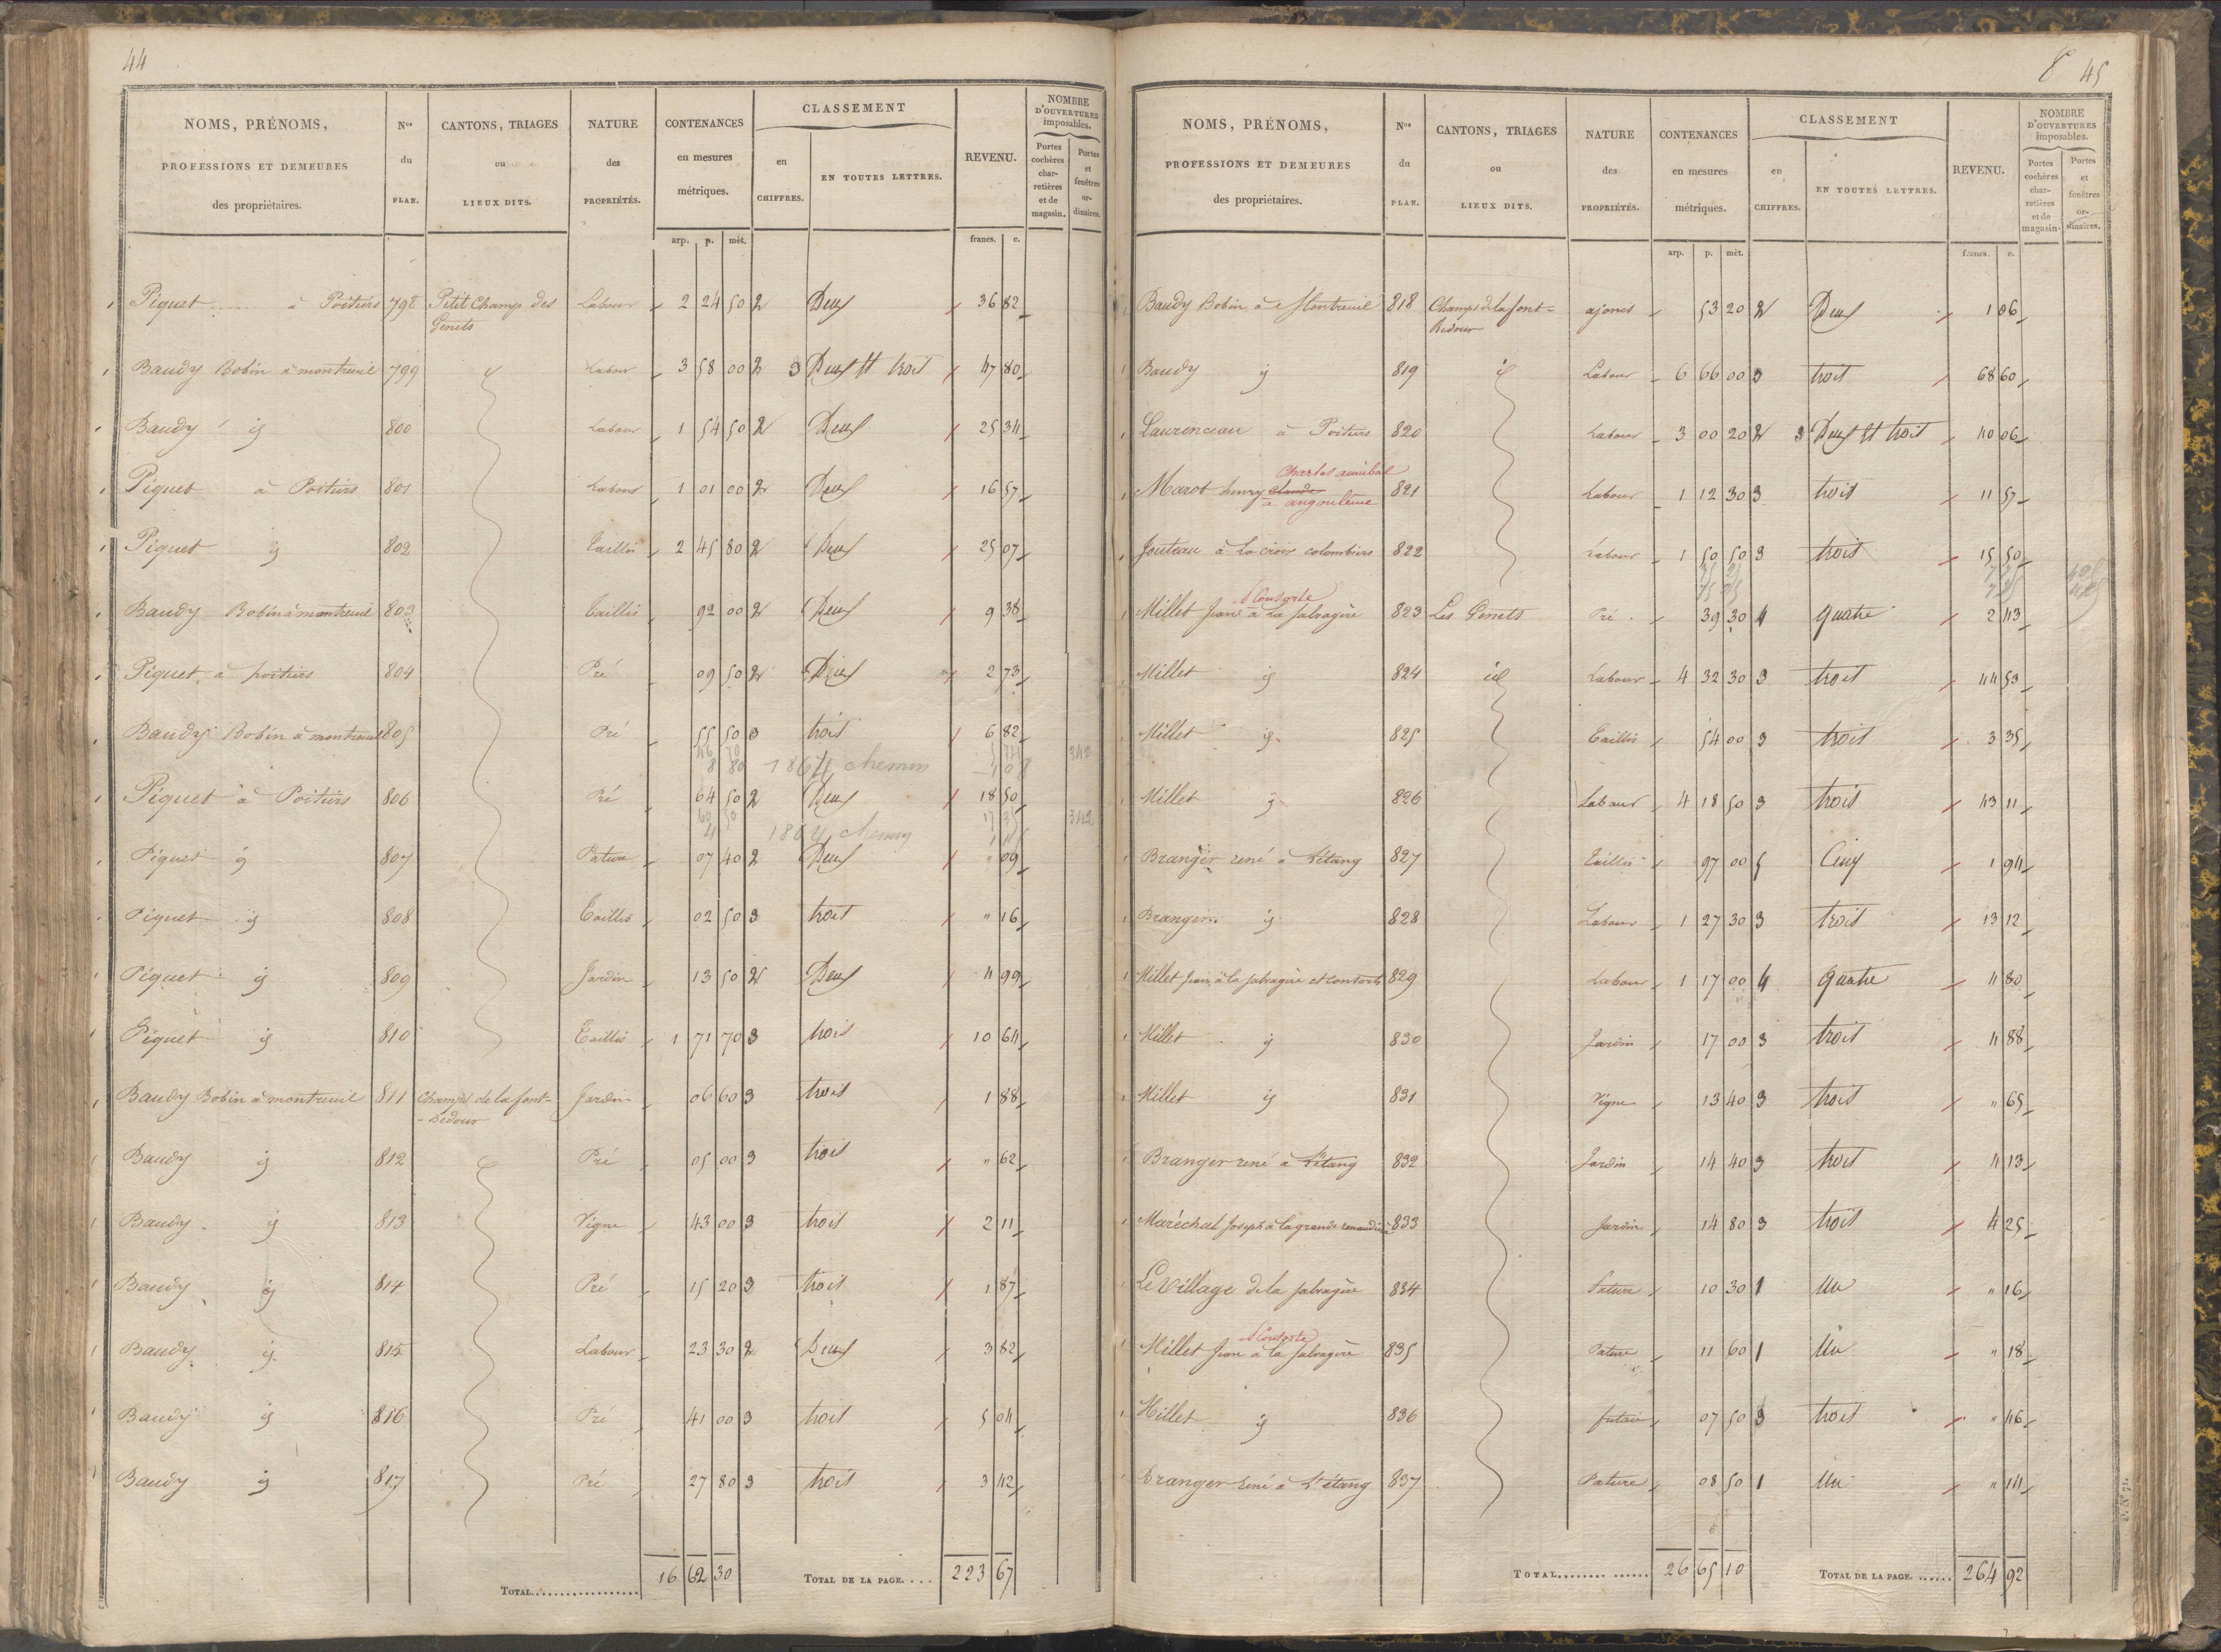 44
NOMS, PRÉNOMS, PROFESSIONS ET DEMEURES des propriétaires. | Nos du PLAN. | CANTONS, TRIAGES ou LIEUX DITS. | NATURE des PROPRIÉTÉS. | CONTENANCES en mesures métriques. | CLASSEMENT en CHIFFRES. | EN TOUTES LETTRES. | REVENU. | NOMBRE D'OUVERTURES imposables. | Portes cochères charretières et de magasin. | Portes et fenêtres ordinaires.
arp. p. mèt. francs. c.
Piquet ...... à Poitiers 798 Petit Champ des Labour 2 24 50 2 Deux 36 82
Genets
Baudy Bobin à montreuil 799 id Labour 3 58 00 2 3 Deux et trois 47 80
Baudy id 800 Labour 1 54 50 2 Deux 25 34
Piquet à Poitiers 801 Labour 1 01 00 2 Deux 16 57
Piquet id 802 Taillis 2 45 80 2 Deux 25 07
Baudy Bobin à montreuil 803 Taillis 92 00 2 Deux 9 38
Piquet à poitiers 804 Pré 09 50 2 Deux 2 73
Baudy Bobin à montreuil 805 Pré 55 50 3 trois 6 82
46 70
8 80 1864 chemin 1 08 342
Piquet à Poitiers 806 Pré 64 50 2 Deux 18 50
60 50 17 35 342
4 1864 chemin
Piquet id 807 Pature 07 40 2 Deux " 09
Piquet id 808 Taillis 02 50 3 trois " 16
Piquet id 809 Jardin 13 50 2 Deux 4 99
Piquet id 810 Taillis 1 71 70 3 trois 10 64
Baudy Bobin à montreuil 811 Champs de la font- Jardin 06 60 3 trois 1 88
- Bedour
Baudy id 812 Pré 05 00 3 trois " 62
Baudy id 813 Vigne 43 00 3 trois 2 11
Baudy id 814 Pré 15 20 3 trois 1 87
Baudy id 815 Labour 23 30 2 Deux 3 82
Baudy id 816 Pré 41 00 3 trois 5 04
Baudy id 817 Pré 27 80 3 trois 3 42
TOTAL.................. 16 62 30 TOTAL DE LA PAGE.... 223 67
8 45
NOMS, PRÉNOMS, PROFESSIONS ET DEMEURES des propriétaires. | Nos du PLAN. | CANTONS, TRIAGES ou LIEUX DITS. | NATURE des PROPRIÉTÉS. | CONTENANCES en mesures métriques. | CLASSEMENT en CHIFFRES. | EN TOUTES LETTRES. | REVENU. | NOMBRE D'OUVERTURES imposables. | Portes cochères charretières et de magasin. | Portes et fenêtres ordinaires.
arp. p. mèt. francs. c.
Baudy Bobin à Montreuil 818 Champs de la font- ajoncs 53 20 2 Deux 1 06
Bedour
Baudy id 819 id Labour 6 66 00 3 trois 68 60
Laurenceau à Poitiers 820 Labour 3 00 20 2 3 Deux et trois 40 06
Charles annibal
Marot henry claude 821 Labour 1 12 30 3 trois 11 57
à angoulême
Jouteau à la croix colombiers 822 Labour 1 50 50 3 trois 15 50
75 25
75 25
& Consorts
Millet Jean à La salvagère 823 Les Genets Pré 39 30 4 quatre 2 43
Millet id 824 id Labour 4 32 30 3 trois 44 53
Millet id 825 Taillis 54 00 3 trois 3 35
Millet id 826 Labour 4 18 50 3 trois 43 11
Branger rené à L'étang 827 Taillis 97 00 5 Cinq 1 94
Branger id 828 Labour 1 27 30 3 trois 13 12
Millet Jean à la salvagère et consorts 829 Labour 1 17 00 4 quatre 4 80
Millet id 830 Jardin 17 00 3 trois 4 88
Millet id 831 Vigne 13 40 3 trois " 65
Branger rené à L'étang 832 Jardin 14 40 3 trois 4 13
Maréchal Joseph à la grande renaudière 833 Jardin 14 80 3 trois 4 25
Le Village de la salvagère 834 Pature 10 30 1 Un " 16
& Consorts
Millet Jean à la salvagère 835 Pature 11 60 1 Un " 18
Millet id 836 futaie 07 50 3 trois " 46
Branger rené à L'étang 837 Pature 08 50 1 Un " 14
TOTAL........ ...... 26 65 10 TOTAL DE LA PAGE. ...... 264 92